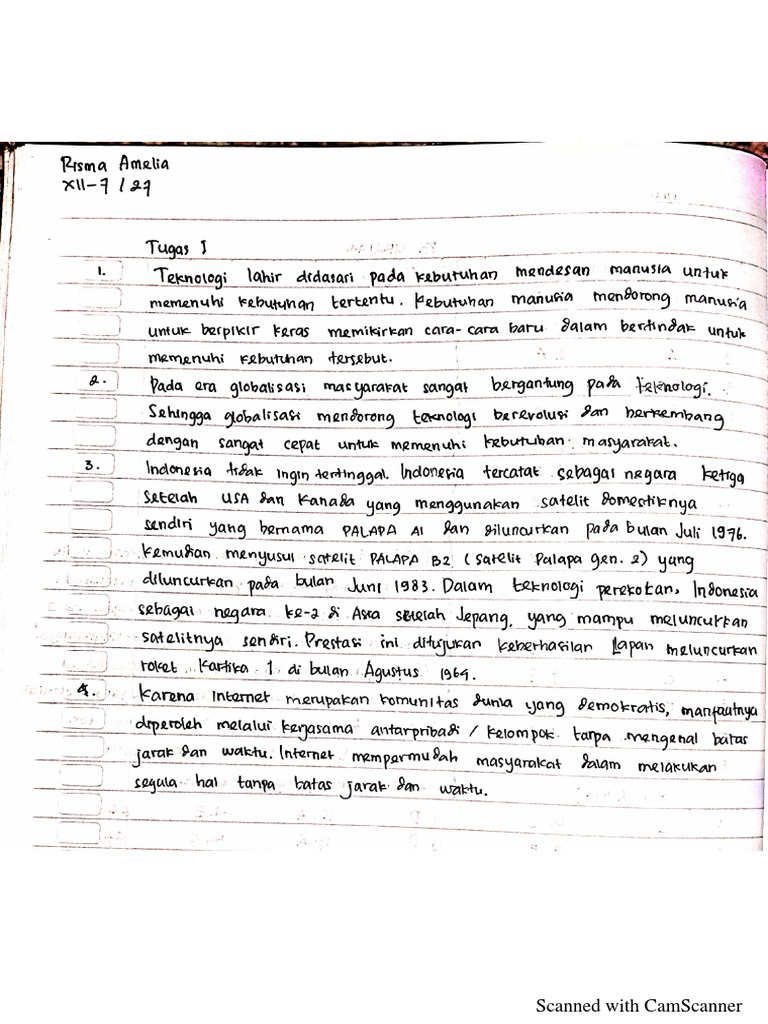 Risma Amelia
XII-7 / 27
Tugas I
1. Teknologi lahir didasari pada kebutuhan mendesan manusia untuk
memenuhi kebutuhan tertentu. Kebutuhan manusia mendorong manusia
untuk berpikir keras memikirkan cara-cara baru dalam bertindak untuk
memenuhi kebutuhan tersebut.
2. Pada era globalisasi masyarakat sangat bergantung pada teknologi.
Sehingga globalisasi mendorong teknologi berevolusi dan berkembang
dengan sangat cepat untuk memenuhi kebutuhan masyarakat.
3. Indonesia tidak ingin tertinggal. Indonesia tercatat sebagai negara ketiga
setelah USA dan Kanada yang menggunakan satelit domestiknya
sendiri yang bernama PALAPA A1 dan diluncurkan pada bulan Juli 1976.
Kemudian menyusul satelit PALAPA B2 (satelit Palapa gen. 2) yang
diluncurkan pada bulan Juni 1983. Dalam teknologi perekotan, Indonesia
sebagai negara ke-2 di Asia setelah Jepang, yang mampu meluncurkan
satelitnya sendiri. Prestasi ini ditujukan keberhasilan Lapan meluncurkan
roket Kartika 1 di bulan Agustus 1964.
4. Karena Internet merupakan komunitas dunia yang demokratis, manfaatnya
diperoleh melalui kerjasama antarpribadi / kelompok tanpa mengenal batas
jarak dan waktu. Internet mempermudah masyarakat dalam melakukan
segala hal tanpa batas jarak dan waktu.
Scanned with CamScanner